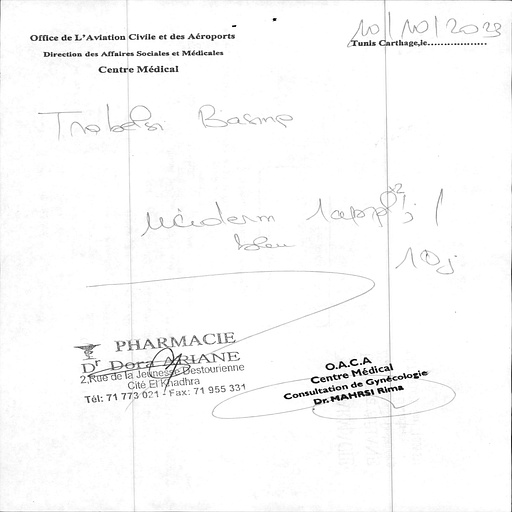 Office de L'Aviation Civile et des Aéroports
Direction des Affaires Sociales et Médicales
Centre Médical
10/10/2023
Tunis Carthage,le.................
Trabelsi Basma
bleu
10j
PHARMACIE
Dr Dora ARIANE
2,Rue de la Jeunesse Destourienne
Cité El Khadhra
Tél: 71 773 021 - Fax: 71 955 331
O.A.C.A
Centre Médical
Consultation de Gynécologie
Dr. MAHRSI Rima